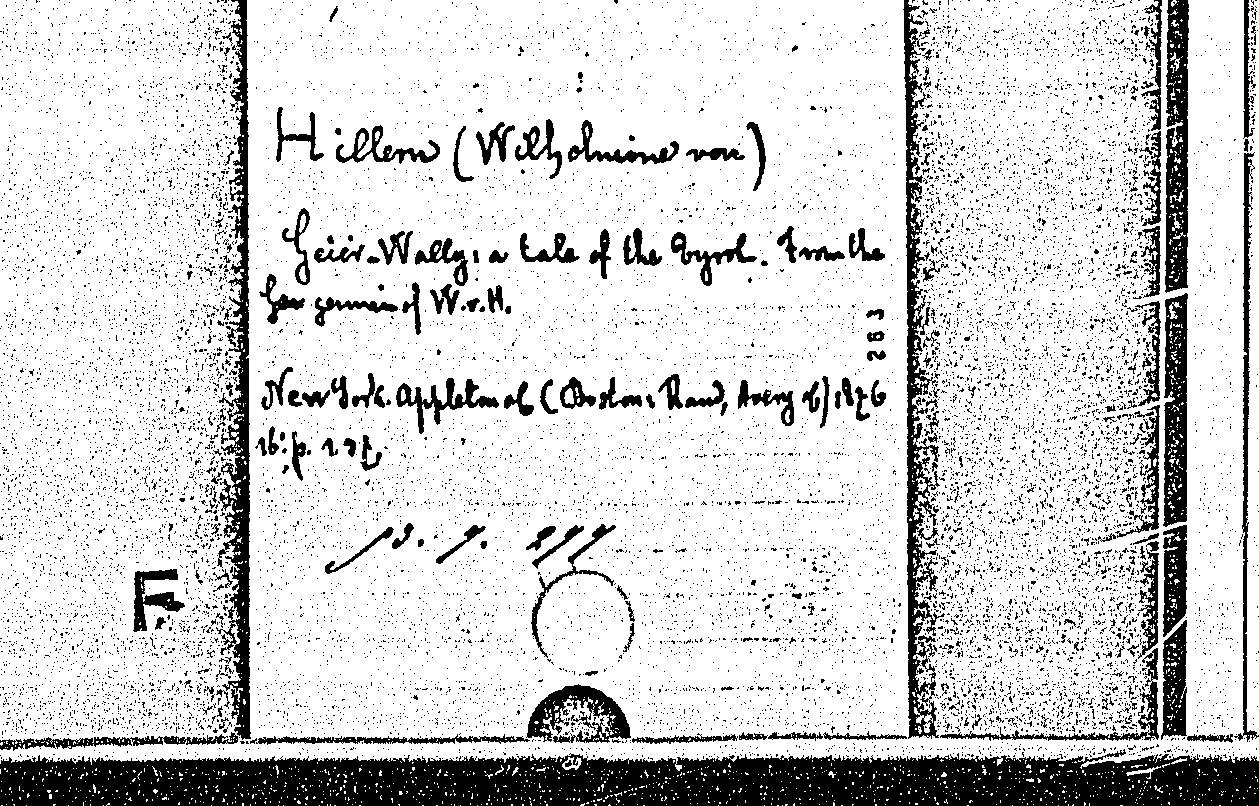 Hillern (Wilhelmine von)
Geier-Wally: a tale of the Tyrol. From the
german of W.v.H.
New York. Appleton (Boston: Rand, Avery) 1876
16°. p.
13. 9.
283
F